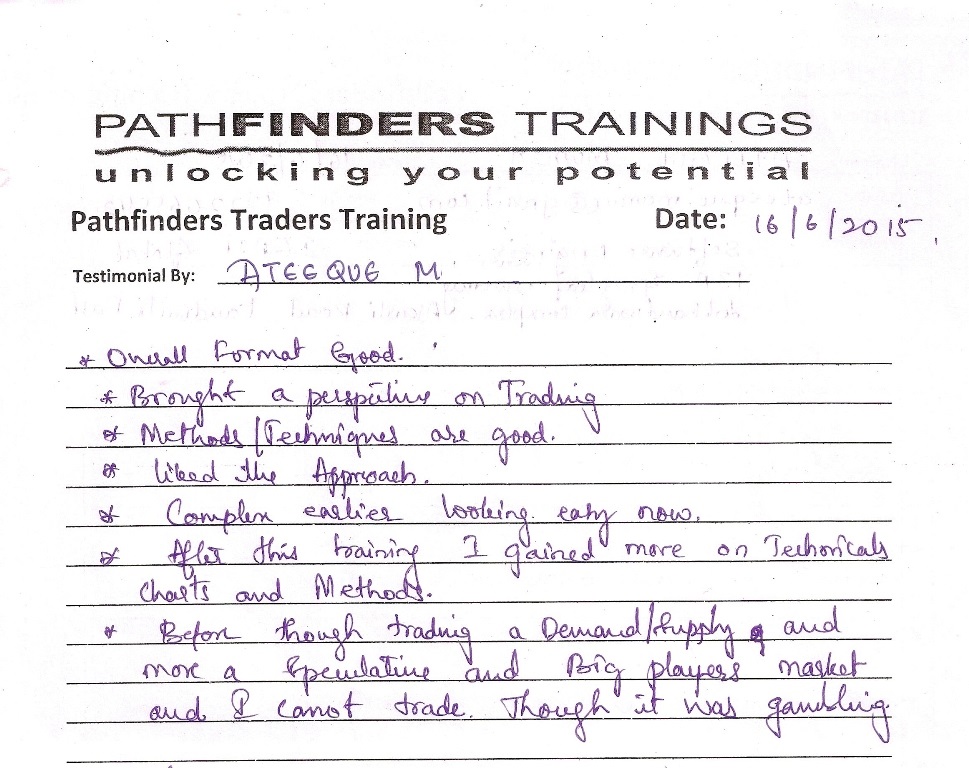 PATHFINDERS TRAININGS
unlocking your potential
Pathfinders Traders Training Date: 16/6/2015.
Testimonial By: ATEEQUE M
* Overall Format Good.
* Brought a perspective on Trading
* Methods/Techniques are good.
* liked the Approach.
* Complex earlier looking easy now.
* After this training I gained more on Techonicals
Charts and Methods.
* Before though trading a Demand/Supply and
more a Speculative and Big players market
and I canot trade. Though it was gambling.